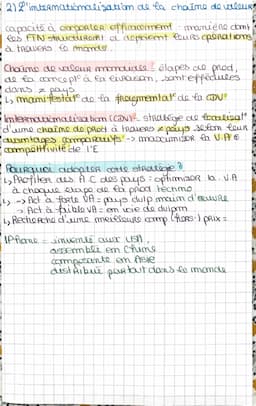 2) L'internationalisation de la chaîne de valeur
capacité à exporter efficacement - manière dont
les FTN structurent et répartent leurs opérations
à travers le monde.
Chaîne de valeur mondiale : étapes de prod,
de la concept° à la livraison, sont effectuées
dans ≠ pays
↳ manifestat° de la fragmentat° de la CDV°
Internationalisation (CDV) : stratégie de localisat°
d'une chaîne de prod à travers ≠ pays selon leurs
avantages comparatifs -> maximiser la V.A et
compétitivité de l'E
Pourquoi adopter cette stratégie ?
↳ Profiter des A C des pays = optimiser la V.A
à chaque étape de la prod techno
↳ -> Act à forte VA = pays dvlp main d'œuvre
-> Act à faible VA = en voie de dvlpm
↳ Recherche d'une meilleure comp (hors-) prix =
IPhone = inventé aux USA,
assemblé en Chine
composante en Asie
distribué partout dans le monde